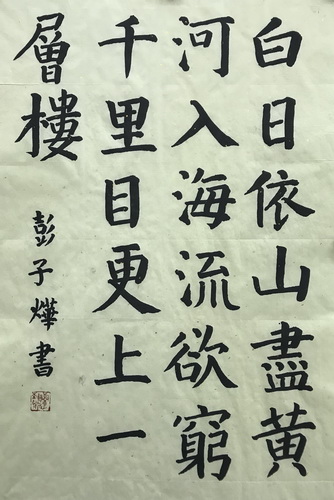 白日依山盡黃
河入海流欲窮
千里目更上一
層樓
彭子燁書